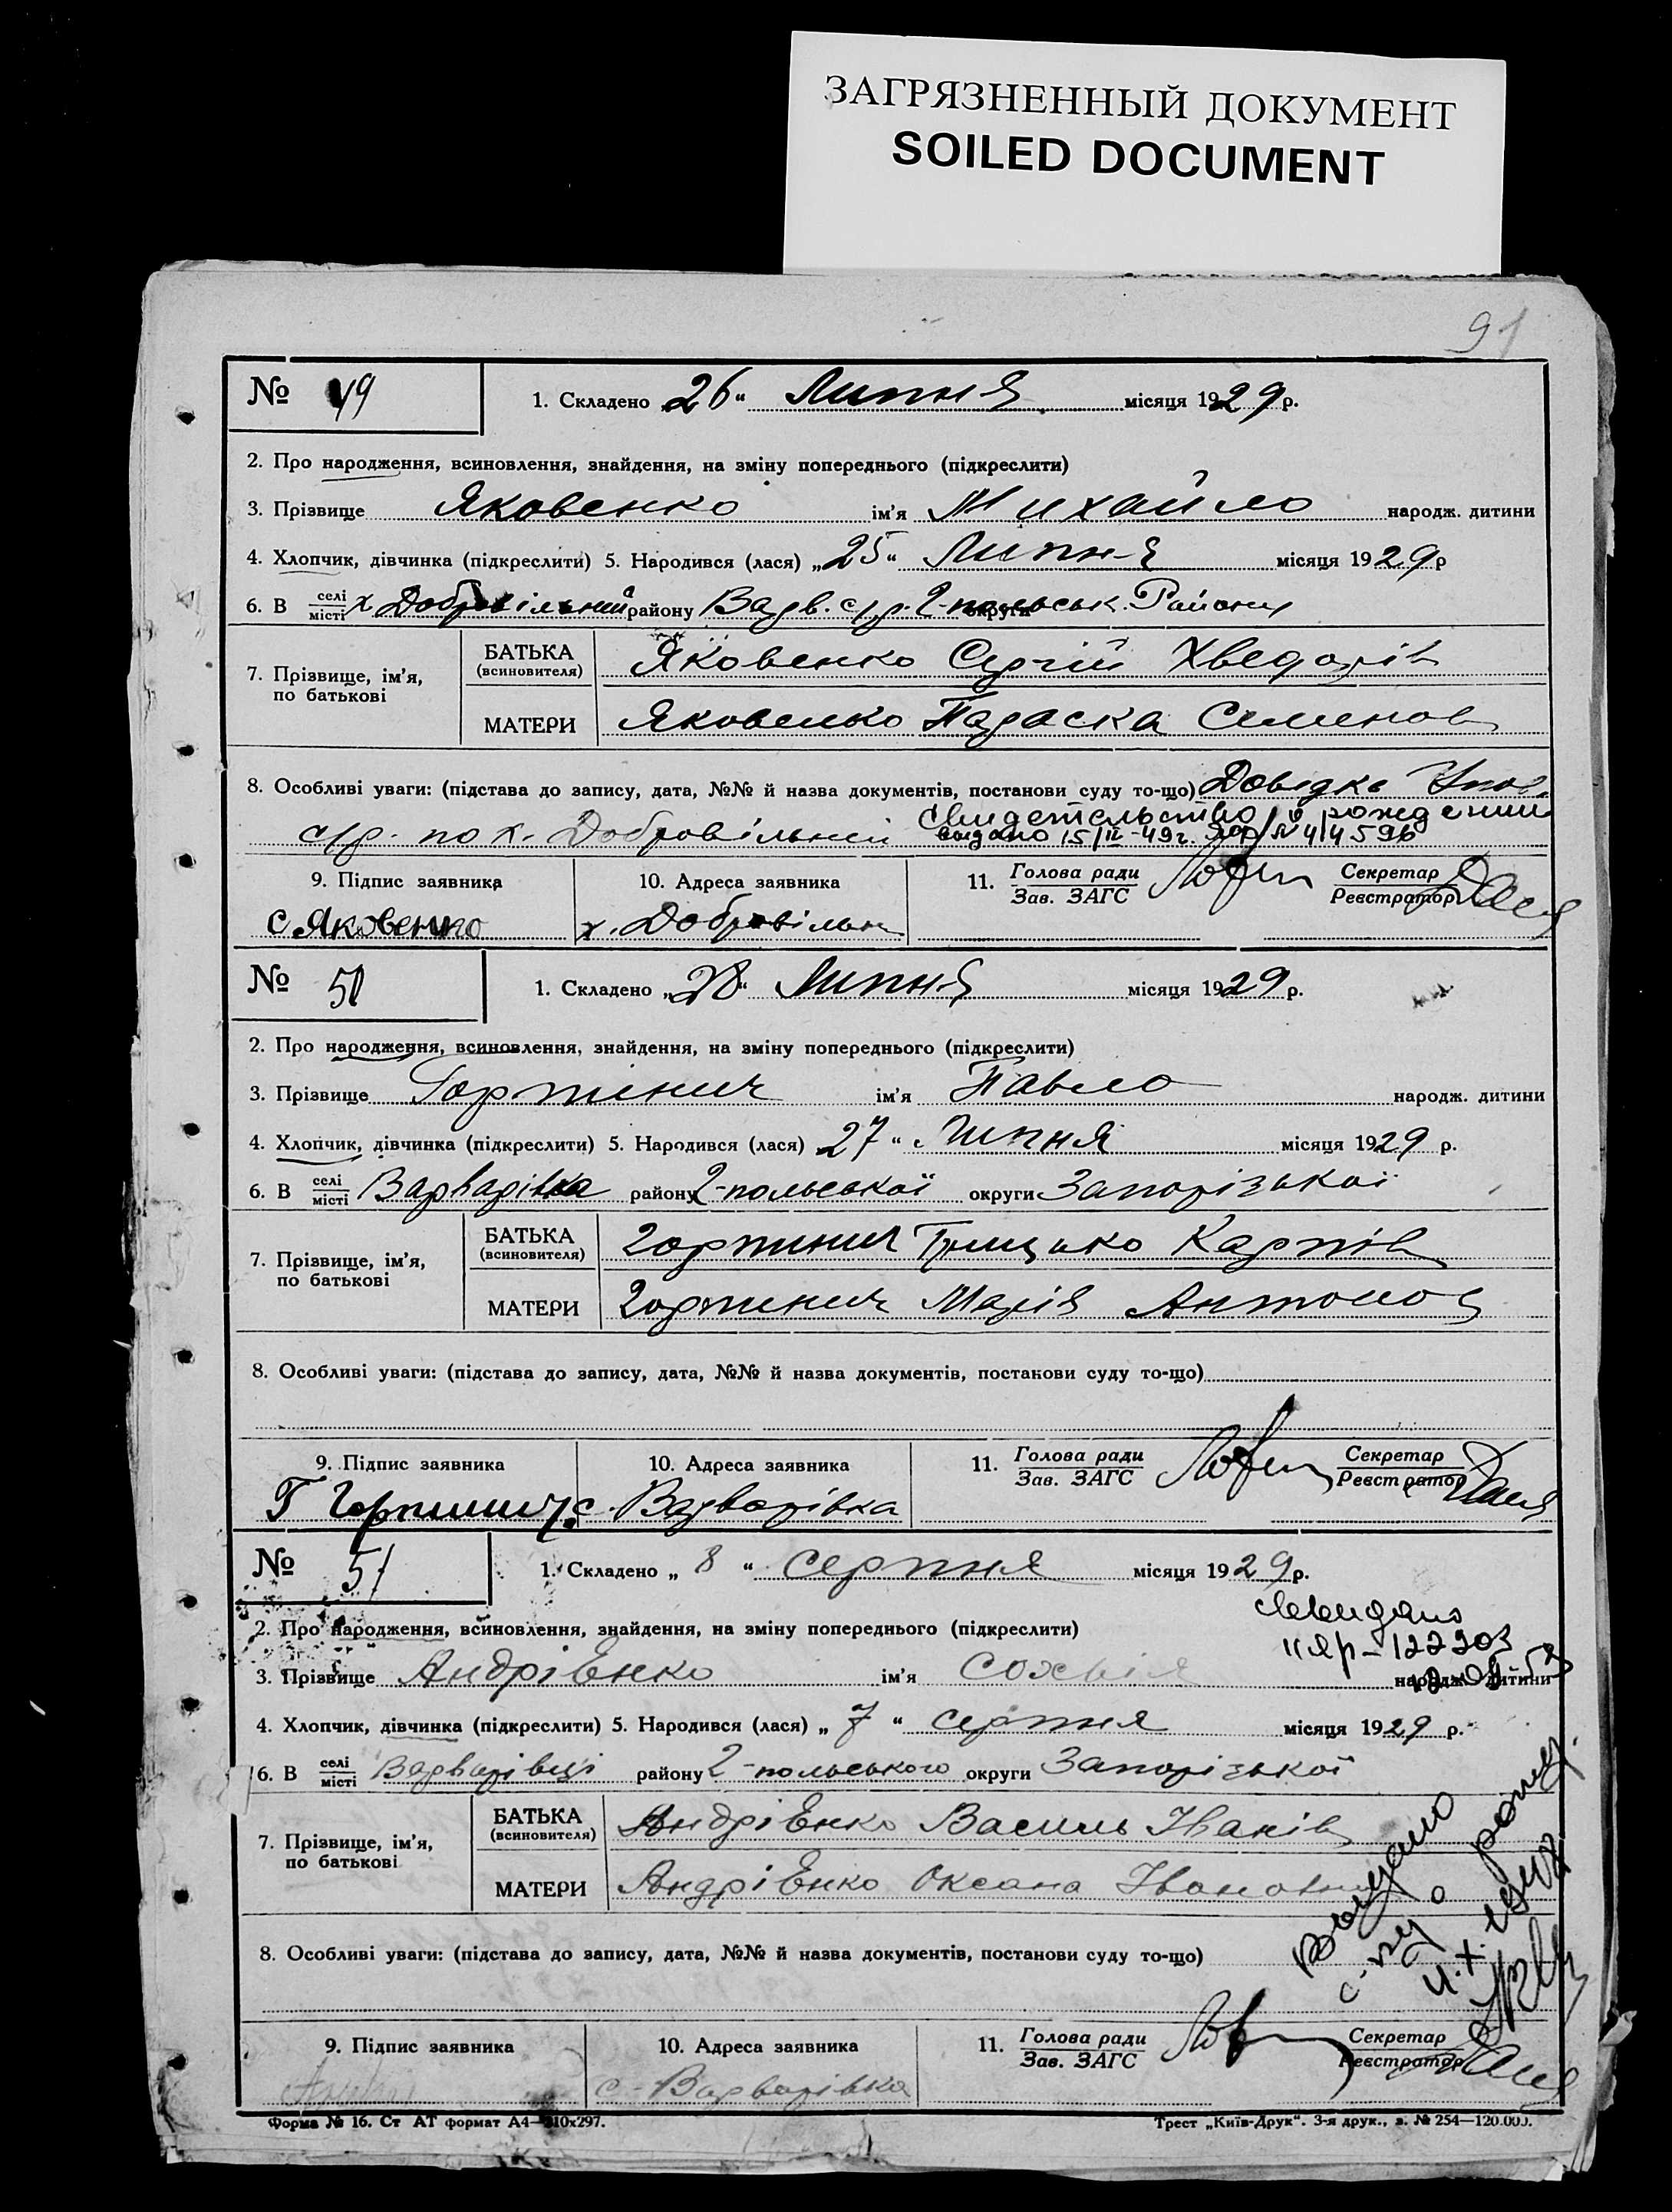 ЗАГРЯЗНЕННЫЙ ДОКУМЕНТ
SOILED DOCUMENT
91
№ 49 1. Складено „26“ Липня місяця 1929 р.
2. Про народження, всиновлення, знайдення, на зміну попереднього (підкреслити)
3. Прізвище Яковенко ім’я Михайло народж. дитини
4. Хлопчик, дівчинка (підкреслити) 5. Народився (лася) „25“ Липня місяця 1929 р
6. В селі місті х Добровільний району Варв. с/р. 2-польськ. округи Району
7. Прізвище, ім’я, по батькові
БАТЬКА (всиновителя) Яковенко Сергій Хведорів
МАТЕРИ Яковенко Параска Семенов
8. Особливі уваги: (підстава до запису, дата, №№ й назва документів, постанови суду то-що) Довідка Упов.
с/р. по х. Добровільний Свидетельство о рождении
выдано 15/II-49г. № 414596
9. Підпис заявника 10. Адреса заявника 11. Голова ради Зав. ЗАГС Секретар Реєстратор
С Яковенко х. Добровільн
№ 50 1. Складено „28“ Липня місяця 1929 р.
2. Про народження, всиновлення, знайдення, на зміну попереднього (підкреслити)
3. Прізвище Горпинич ім’я Павло народж. дитини
4. Хлопчик, дівчинка (підкреслити) 5. Народився (лася) 27“ Липня місяця 1929 р.
6. В селі місті Варварівка району 2-польської округи Запорізької
7. Прізвище, ім’я, по батькові
БАТЬКА (всиновителя) Горпинич Грицько Карпів
МАТЕРИ Горпинич Марія Антонов
8. Особливі уваги: (підстава до запису, дата, №№ й назва документів, постанови суду то-що)
9. Підпис заявника 10. Адреса заявника 11. Голова ради Зав. ЗАГС Секретар Реєстратор
Г Горпинич с. Варварівка
№ 51 1. Складено „8“ серпня місяця 1929 р.
2. Про народження, всиновлення, знайдення, на зміну попереднього (підкреслити)
3. Прізвище Андрієнко ім’я Сохвія народж. дитини
4. Хлопчик, дівчинка (підкреслити) 5. Народився (лася) „7“ серпня місяця 1929 р.
6. В селі місті Варварівці району 2-польського округи Запорізької
7. Прізвище, ім’я, по батькові
БАТЬКА (всиновителя) Андрієнко Василь Іванів
МАТЕРИ Андрієнко Оксана Івановна
Выдано
с-ву о рожд.
8. Особливі уваги: (підстава до запису, дата, №№ й назва документів, постанови суду то-що)
9. Підпис заявника 10. Адреса заявника 11. Голова ради Зав. ЗАГС Секретар Реєстратор
с-Варварівка
Форма № 16. Ст АТ формат А4—210х297. Трест „Київ-Друк“. 3-я друк., з. № 254—120.000.